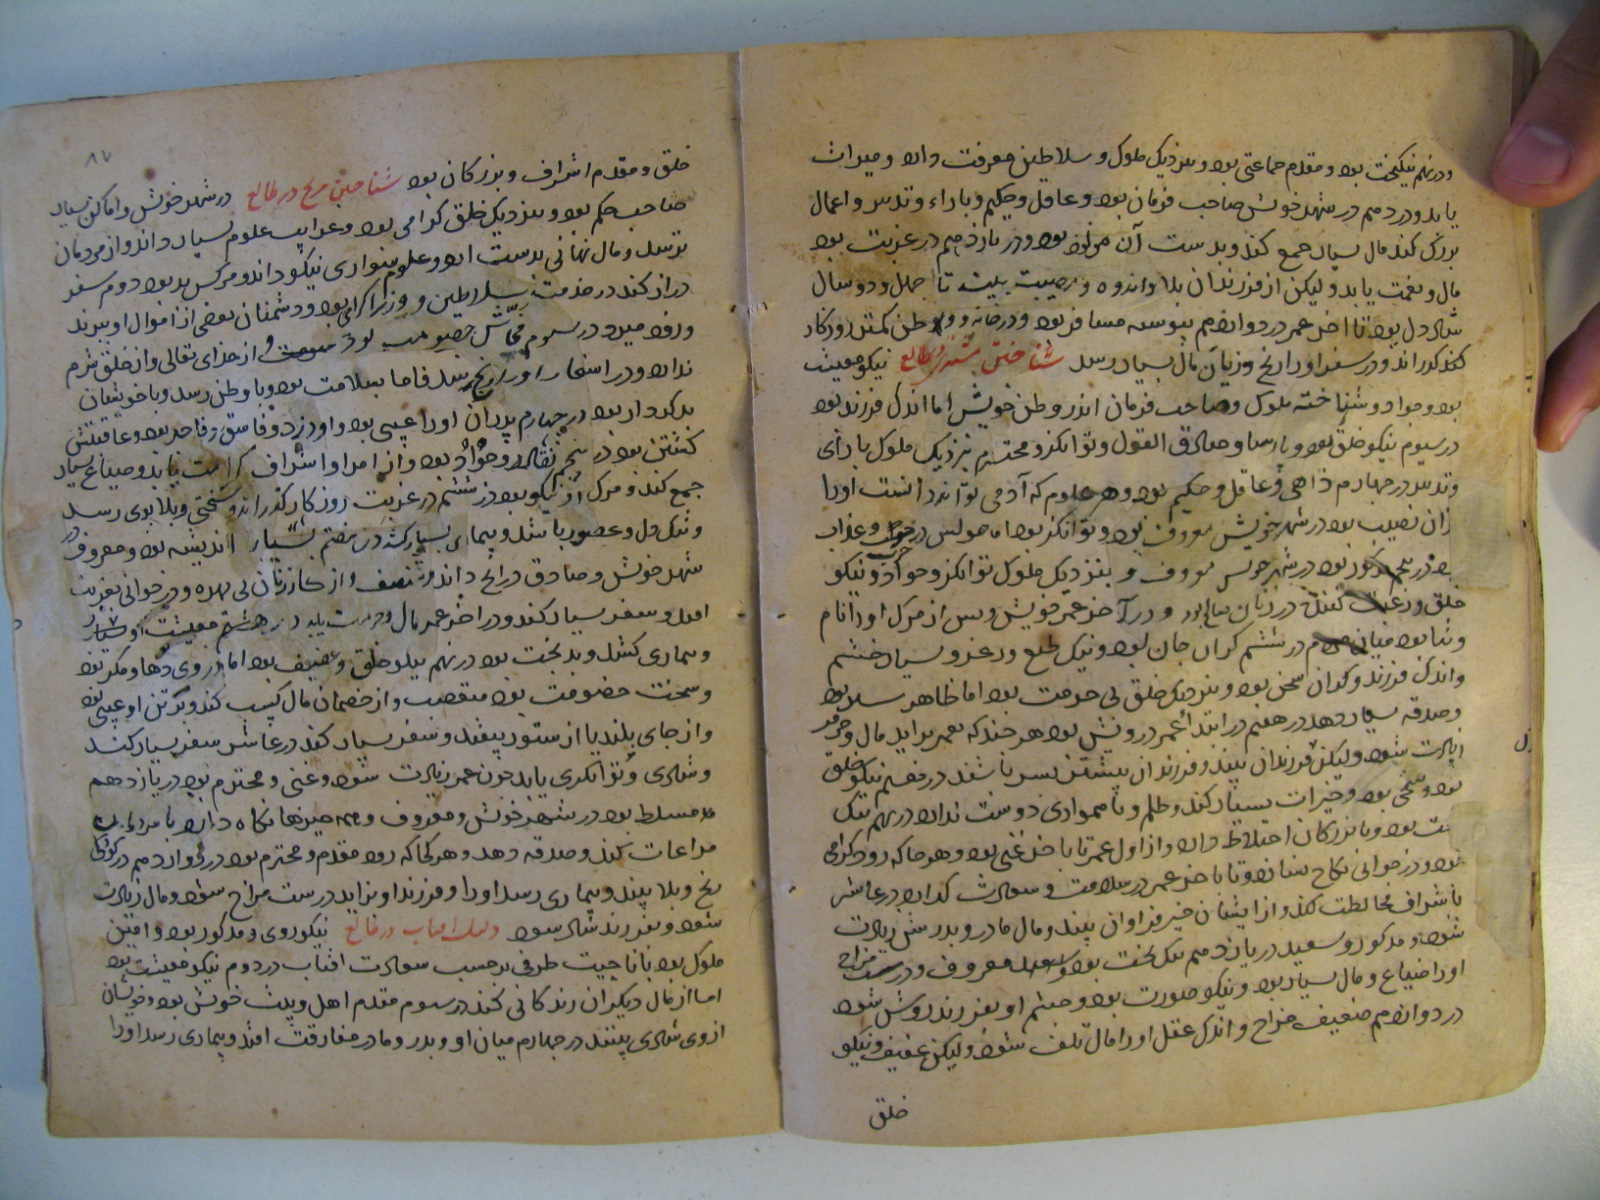 و در نهم نیکبخت بود و مقدم جماعتی بود و بنزدیک ملوک و سلاطین معرفت دارد و میراث
یابد و در دهم در شهر خویش صاحب فرمان بود و عاقل و حکیم و با راء و تدبیر و اعمال
بزرک کند مال بسیار جمع کند و بدست آن بود و در یازدهم در غربت بود
مال و نعمت یابد و لیکن از فرزندان بلا و اندوه و مصیبت بیند تا چهل و دو سال
شاد دل بود تا آخر عمر در دوازدهم پیوسته مسافر بود و در خانه و وطن کمتر روزکار
کذراند و در سفر او را رنج و زیان مال بسیار رسد شناختن مشتری در طالع نیکو معیشت
بود و جواد و شناخته ملوک و صاحب فرمان اندر وطن خویش اما اندک فرزند بود
در سیوم نیکو خلق بود و پارسا و صادق القول و توانکر و محترم بنزدیک ملوک با رأی
و تدبیر در چهارم داهی و عاقل و حکیم بود و هر علوم که آدمی تواند دانست او را
زان نصیب بود در شهر خویش معروف بود و توانکر بود اما
در پنجم در شهر خویش معروف و بنزدیک ملوک توانکر و جواد و نیکو
خلق و رغبت کننده در زنان و در آخر عمر خویش و پس از مرک او را نام
و ثنا بود میان مردم در ششم کران جان بود و نیک طبع و بسیار خشم
و اندک فرزند و کران سخن بود و بنزدیک خلق بی حرمت بود اما ظاهر
و صدقه بسیار دهد در هفتم در ابتداء عمر درویش بود هر چند که بعمر برآید مال
زیادت شود و لیکن فرزندان بیند و فرزندان بیشتر پسر باشند در هشتم نیکو خلق
بود و سخی بود و خیرات بسیار کند و ظلم و ناهمواری دوست ندارد در نهم نیک
بخت بود و با بزرکان اختلاط دارد و از اول عمر تا باخر غنی بود و هر جا که رود کرامی
بود و در جوانی نکاح و تا باخر عمر در سلامت و سعادت کذارد در عاشر
با اشراف مخالطت کند و از ایشان خیر فراوان بیند و مال مادر و پدرش زیادت
شود و مذکور و سعید در یازدهم نیک بخت بود و معروف و درست مزاج
او را ضیاع و مال بسیار بود و نیکو صورت بود و چشم او بفرزند روشن شود
در دوازدهم ضعیف مزاج و اندک عقل او را مال تلف شود و لیکن عفیف و نیکو
خلق
۸۷
خلق و مقدم اشراف و بزرکان بود شناختن مریخ در طالع در شهر خویش و اماکن بسیار
صاحب حکم بود و بنزدیک خلق کرامی بود و غرایب علوم بسیار داند و از مردمان
ترسد و مال نهانی بدست آرد و علوم نیکو داند و مرکش بد بود دوم سفر
دراز کند در خدمت سلاطین و وزرا کرامی بود و دشمنان بعضی از اموال او ببرند
در سیوم و از خدای تعالی و از خلق شرم
ندارد و در اسفار او را رنج رسد فاما بسلامت بود و با وطن رسد و با خویشان
بدکردار بود در چهارم پدران او را عیبی بود و او دزد و فاسق و فاجر بود و عاقبتش
کشتن بود در پنجم و جواد بود و از امرا و اشراف کرامت یابد و ضیاع بسیار
جمع کند و مرک او نیکو بود در ششم در غربت روزکار کذراند و سختی و بلا بوی رسد
و تنک دل و باشد و بیماری بسیار کشد در هفتم بسیار اندیشه بود و معروف در
شهر خویش و صادق و رایح داند و از کار زنان بی بهره و در جوانی بغربت
افتد و سفر بسیار کند و در آخر عمر مال و حرمت یابد در هشتم معیشت او
و بیماری کشد و بدبخت بود در نهم نیکو خلق و عفیف بود اما در وی دها و مکر بود
و سخت خصومت بود متعصب و از خصمان مال کسب کند و بر تن او عیبی بود
و از جای بلند یا از ستور بیفتد و سفر بسیار کند در عاشر سفر بسیار کند
و شادی و توانکری یابد چون عمر زیادت شود و غنی و محترم بود در یازدهم
مسلط بود در شهر خویش و معروف و همه چیزها نکاه دارد با مردمان
مراعات کند و صدقه دهد و هر کجا که رود مقدم و محترم بود در دوازدهم در کودکی
رنج و بلا بیند و بیماری رسد او را و فرزند او نزاید درست مزاج شود و مال زیادت
شود و بفرزند شاد شود دلیل آفتاب در طالع نیکو روی و مذکور بود و امین
ملوک بود یا ناحیت طرفی بر حسب سعادت آفتاب در دوم نیکو معیشت بود
اما از مال دیکران زندکانی کند در سیوم مقدم اهل و بیت خویش بود و خویشان
از وی شادی بینند در چهارم میان او و پدر و مادر مفارقت افتد و بیماری رسد او را